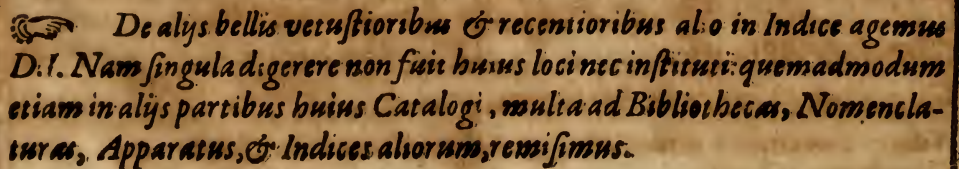 ☞ De alijs bellis vetuſtioribus & recentioribus alio in Indice agemus
D.I. Nam ſingula digerere non fuit huius loci nec inſtituti: quemadmodum
etiam in alijs partibus huius Catalogi, multa ad Bibliothecas, Nomencla-
turas, Apparatus, & Indices aliorum, remiſimus.